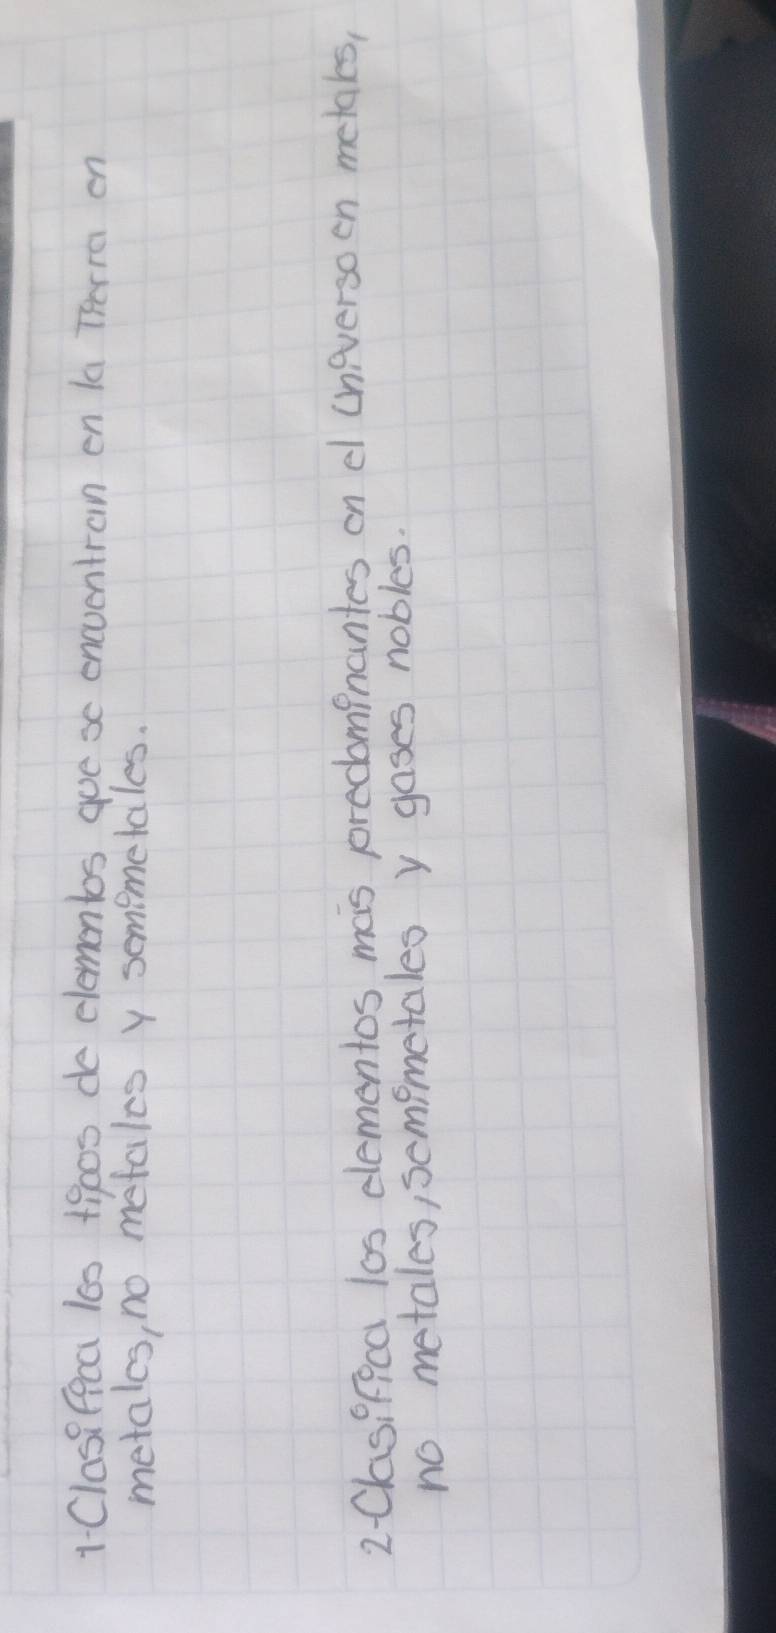 1-Clasifica los tipos de elementos que se encuentran en la Tierra en
metales, no metales y semimetales.
2-Clasifica los elementos más predominantes en el universo en metales,
no metales, semimetales y gases nobles.